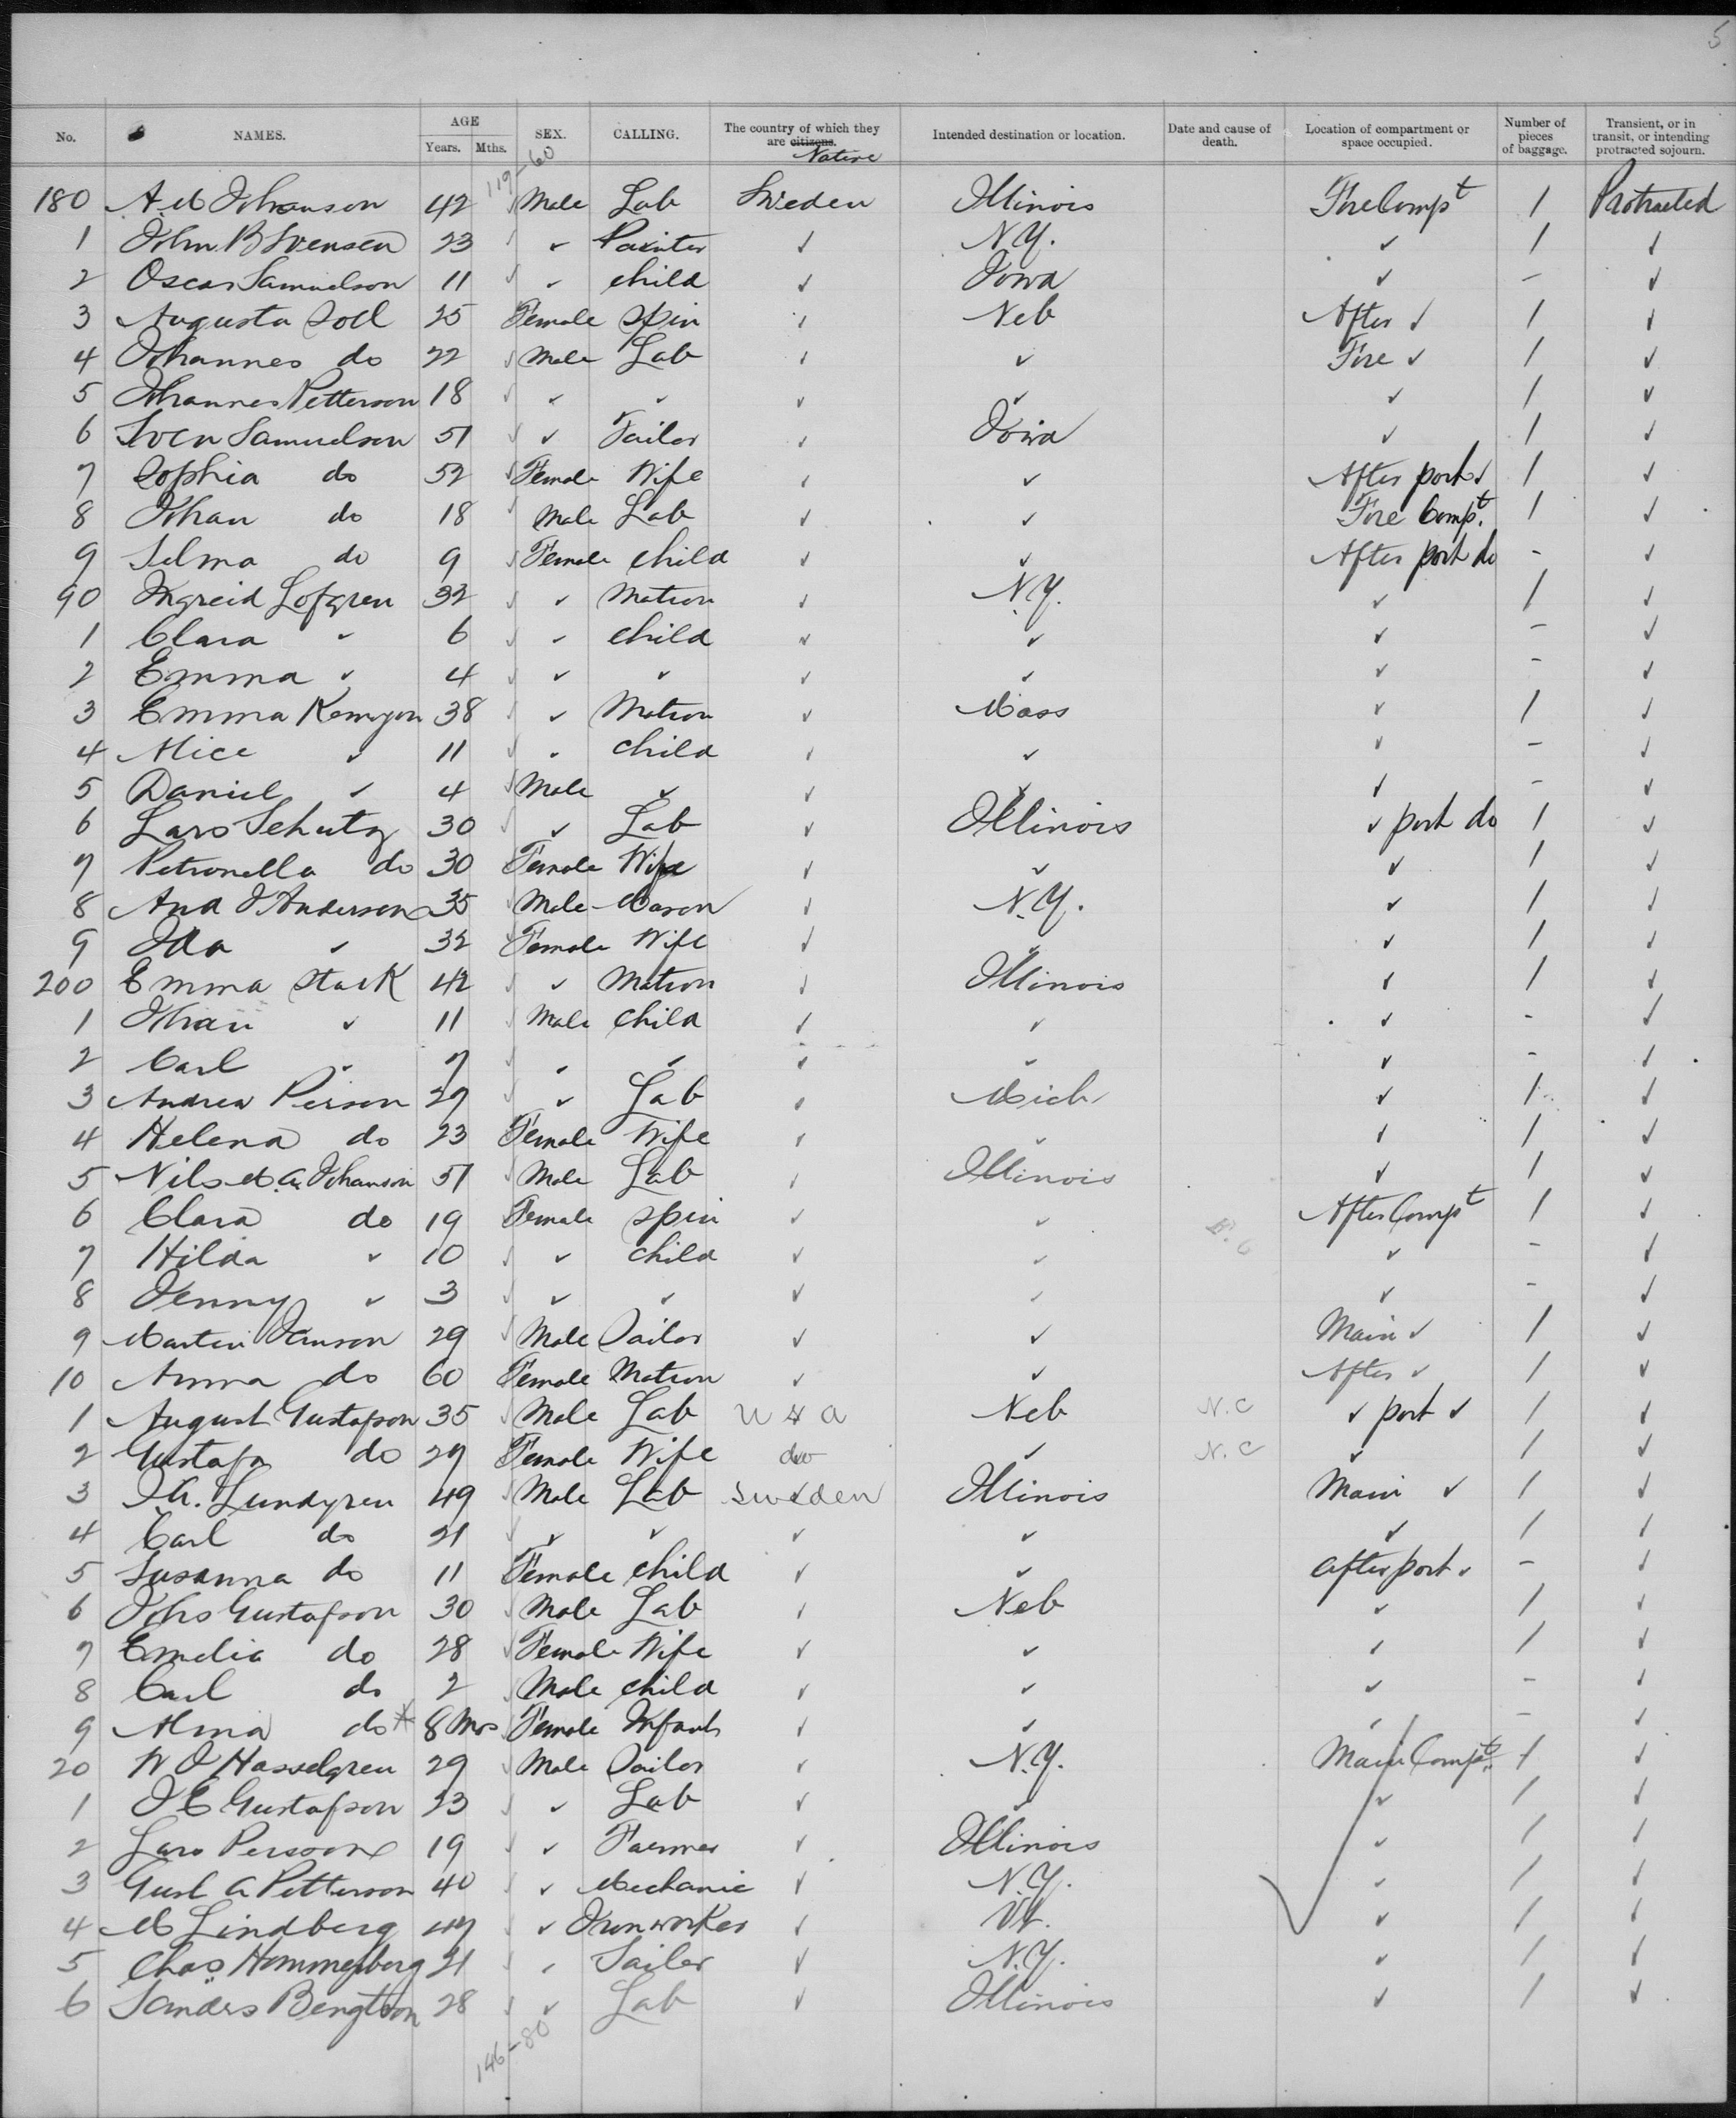 5
No. NAMES. AGE Years. Mths. SEX. CALLING. The country of which they are citizens. Native Intended destination or location. Date and cause of death. Location of compartment or space occupied. Number of pieces of baggage. Transient, or in transit, or intending protracted sojourn.
119-60
180 A. M Johanson 42 ✓ Male Lab Sweden Illinois Fore Compt 1 Protracted
1 John B Svensen 23 ✓ ✓ Painter ✓ N.Y. ✓ 1 ✓
2 Oscar Samuelson 11 ✓ ✓ child ✓ Iowa ✓ - ✓
3 Augusta Doll 25 Female Spin ✓ Neb After ✓ 1 ✓
4 Johannes do 22 ✓ Male Lab ✓ ✓ Fore ✓ 1 ✓
5 Johannes Petterson 18 ✓ ✓ ✓ ✓ ✓ ✓ 1 ✓
6 Sven Samuelson 51 ✓ ✓ Tailor ✓ Iowa ✓ 1 ✓
7 Sophia do 52 ✓ Female Wife ✓ ✓ After port ✓ 1 ✓
8 Johan do 18 Male Lab ✓ ✓ Fore Compt. 1 ✓
9 Selma do 9 ✓ Female child ✓ ✓ After port do - ✓
90 Ingreid Lofgren 32 ✓ ✓ Matron ✓ N.Y. ✓ 1 ✓
1 Clara ✓ 6 ✓ ✓ child ✓ ✓ ✓ - ✓
2 Emma ✓ 4 ✓ ✓ ✓ ✓ ✓ ✓ - ✓
3 Emma 38 ✓ ✓ Matron ✓ Mass ✓ 1 ✓
4 Alice ✓ 11 ✓ ✓ child ✓ ✓ ✓ - ✓
5 Daniel ✓ 4 ✓ Male ✓ ✓ ✓ ✓ - ✓
6 Lars Schutz 30 ✓ ✓ Lab ✓ Illinois ✓ port do 1 ✓
7 Petronella do 30 Female Wife ✓ ✓ ✓ 1 ✓
8 And J Anderson 35 Male Mason ✓ N.Y. ✓ 1 ✓
9 Ida ✓ 32 Female Wife ✓ ✓ ✓ 1 ✓
200 Emma Stark 42 ✓ ✓ Matron ✓ Illinois ✓ 1 ✓
1 Johan ✓ 11 ✓ Male child ✓ ✓ ✓ - ✓
2 Carl ✓ 7 ✓ ✓ ✓ ✓ ✓ ✓ - ✓
3 Andrew Pierson 27 ✓ ✓ Lab ✓ Mich ✓ 1 ✓
4 Helena do 23 Female Wife ✓ ✓ ✓ 1 ✓
5 Nils M. A. Johanson 51 ✓ Male Lab ✓ Illinois ✓ 1 ✓
6 Clara do 19 Female Spin ✓ ✓ After Compt 1 ✓
7 Hilda ✓ 10 ✓ ✓ child ✓ ✓ ✓ - ✓
8 Jenny ✓ 3 ✓ ✓ ✓ ✓ ✓ ✓ - ✓
9 Martin Janson 29 ✓ Male Sailor ✓ ✓ Main ✓ 1 ✓
10 Anna do 60 Female Matron ✓ ✓ After ✓ 1 ✓
1 August Gustafson 35 ✓ Male Lab U S A Neb N.C ✓ port ✓ 1 ✓
2 Gustafa do 27 Female Wife do ✓ N.C ✓ 1 ✓
3 J.A. Lundgren 49 ✓ Male Lab Sweden Illinois Main ✓ 1 ✓
4 Carl do 21 ✓ ✓ ✓ ✓ ✓ ✓ 1 ✓
5 Susanna do 11 Female child ✓ ✓ After port ✓ - ✓
6 Johs Gustafson 30 ✓ Male Lab ✓ Neb ✓ 1 ✓
7 Emelia do 28 ✓ Female Wife ✓ ✓ ✓ 1 ✓
8 Carl do 2 ✓ Male child ✓ ✓ ✓ - ✓
9 Alma do * 8 Mos Female Infant ✓ ✓ ✓ - ✓
20 W J Hasselgren 29 ✓ Male Sailor ✓ N.Y. Main Compt. 1 ✓
1 J E Gustafson 23 ✓ ✓ Lab ✓ ✓ ✓ 1 ✓
2 Lars Persson 19 ✓ ✓ Farmer ✓ Illinois ✓ 1 ✓
3 Gust A Petterson 40 ✓ ✓ Mechanic ✓ N.Y. ✓ 1 ✓
4 M Lindberg 47 ✓ ✓ Ironworker ✓ Vt. ✓ 1 ✓
5 Chas Hammerberg 21 ✓ Sailor ✓ N.Y. ✓ 1 ✓
6 Sanders Bengtson 28 ✓ ✓ Lab ✓ Illinois ✓ 1 ✓
146-80